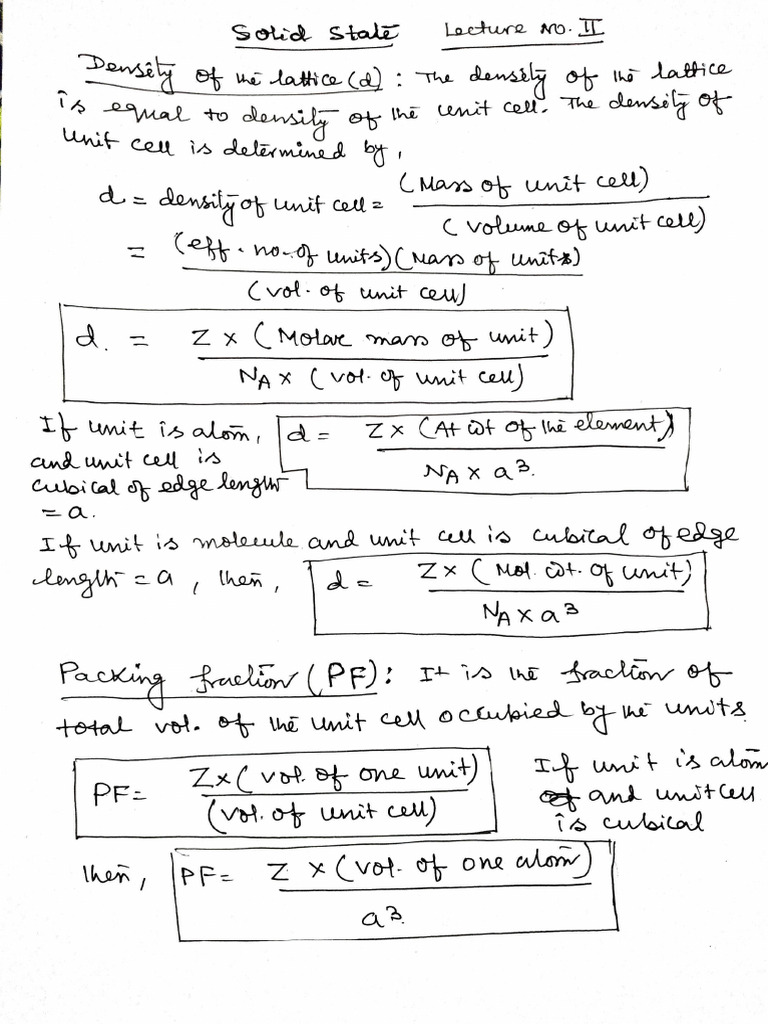 Solid State Lecture No. II
Density of the lattice (d) : The density of the lattice
is equal to density of the unit cell. The density of
unit cell is determined by,
d = density of unit cell = (Mass of unit cell)
(volume of unit cell)
= (eff. no. of units) (Mass of units)
(vol. of unit cell)
d. = Z × (Molar mass of unit)
NA × (vol. of unit cell)
If unit is atom,
and unit cell is
cubical of edge length
= a.
d = Z × (At wt of the element)
NA × a3.
If unit is molecule and unit cell is cubical of edge
length = a, then,
d = Z × (Mol. wt. of unit)
NA × a3
Packing fraction (PF): It is the fraction of
total vol. of the unit cell occupied by the units
PF = Z × (vol. of one unit)
(vol. of unit cell)
If unit is atom
and unit cell
is cubical
then, PF = Z × (vol. of one atom)
a3.